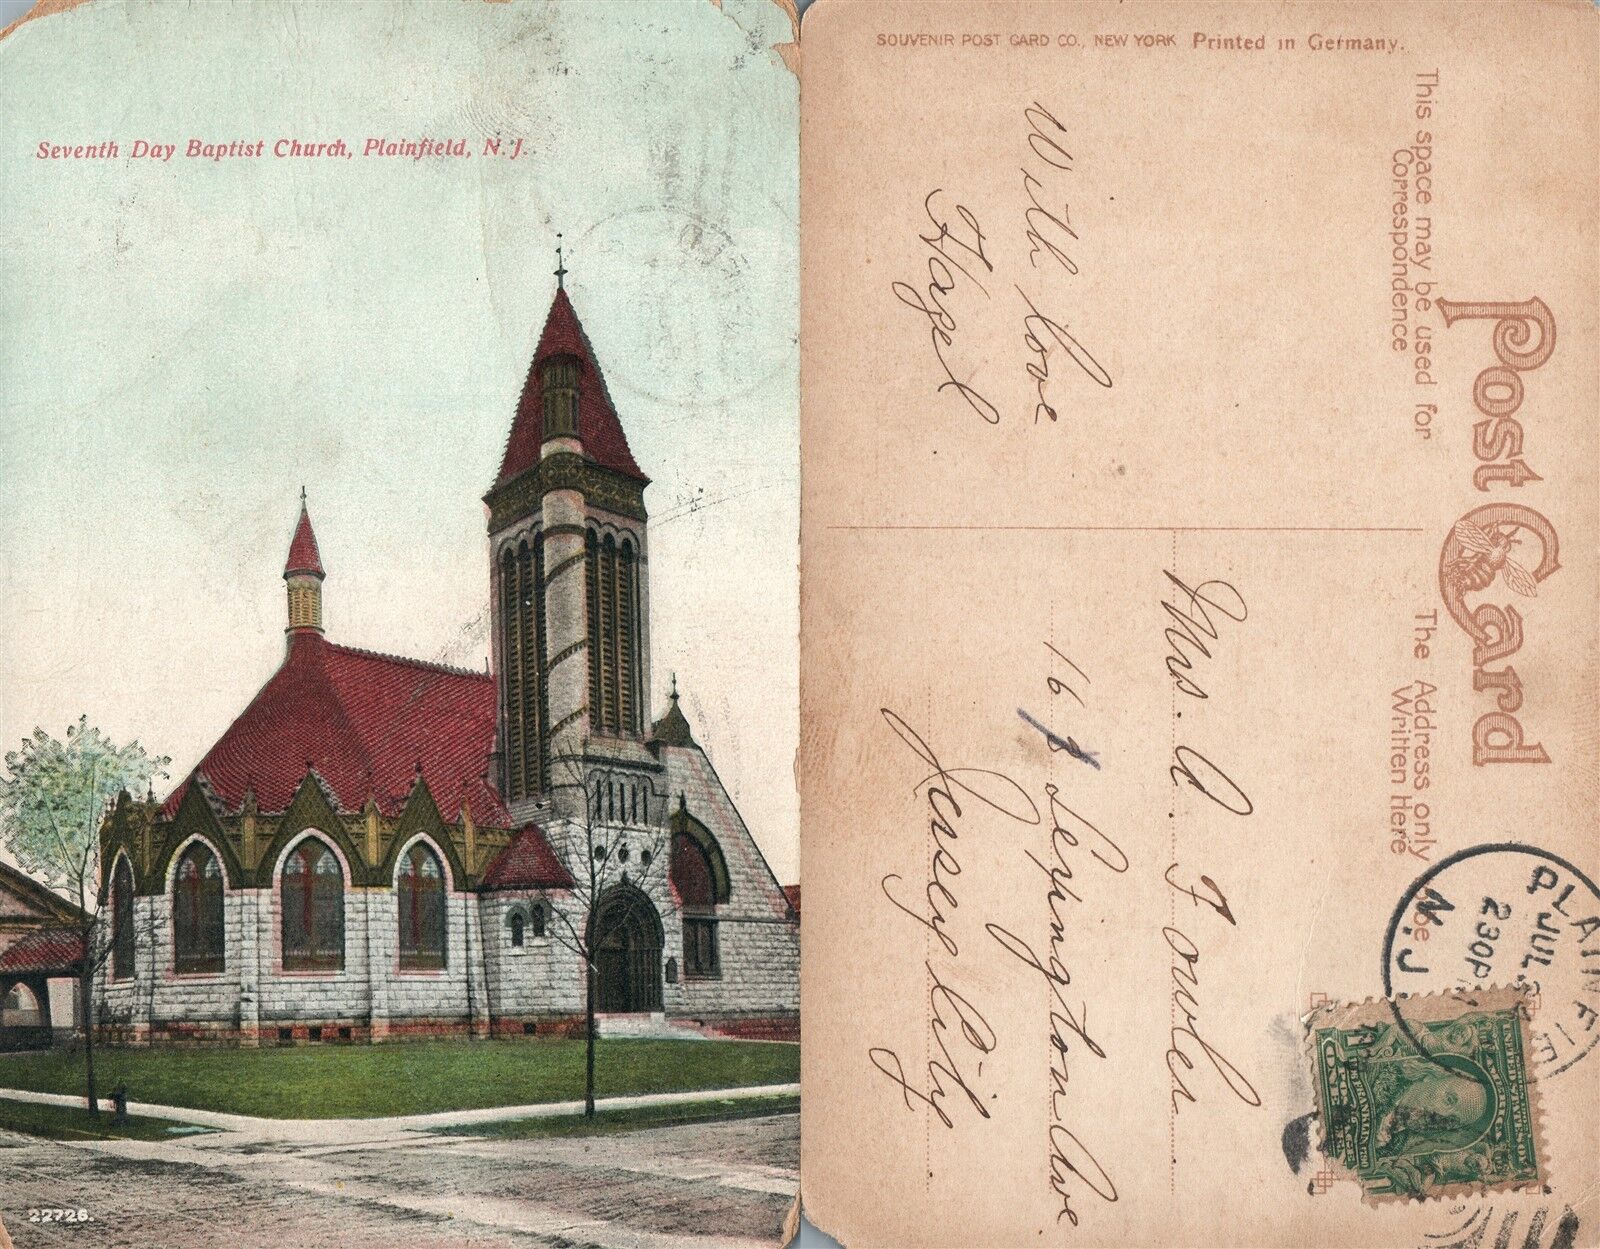 Seventh Day Baptist Church, Plainfield, N.J.
22726.
SOUVENIR POST CARD CO., NEW YORK Printed in Germany.
Post Card
This space may be used for
Correspondence
The Address only to be
Written Here
With love
Hazel
Mrs. A. Fowler
Lexington Ave
Jersey City.
PLAINFIELD
JUL
230PM
N.J.